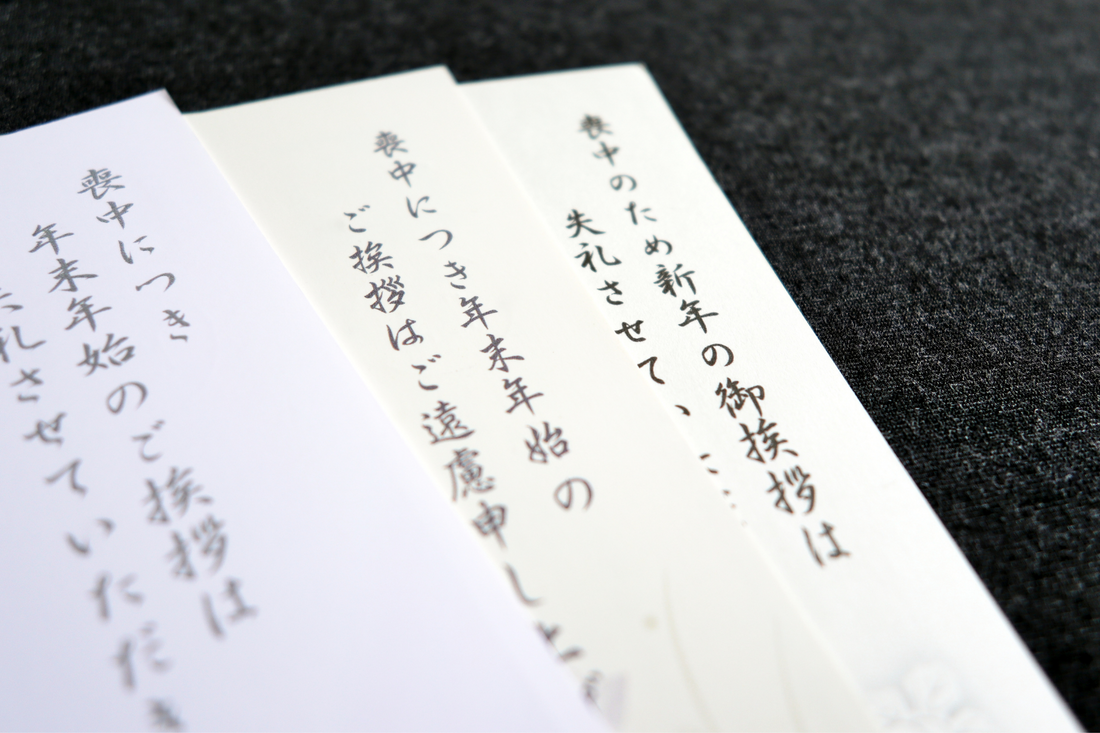 喪中のため新年の御挨拶は
失礼させてい
喪中につき年末年始の
ご挨拶はご遠慮申し上げ
喪中につき
年末年始のご挨拶は
失礼させていただき